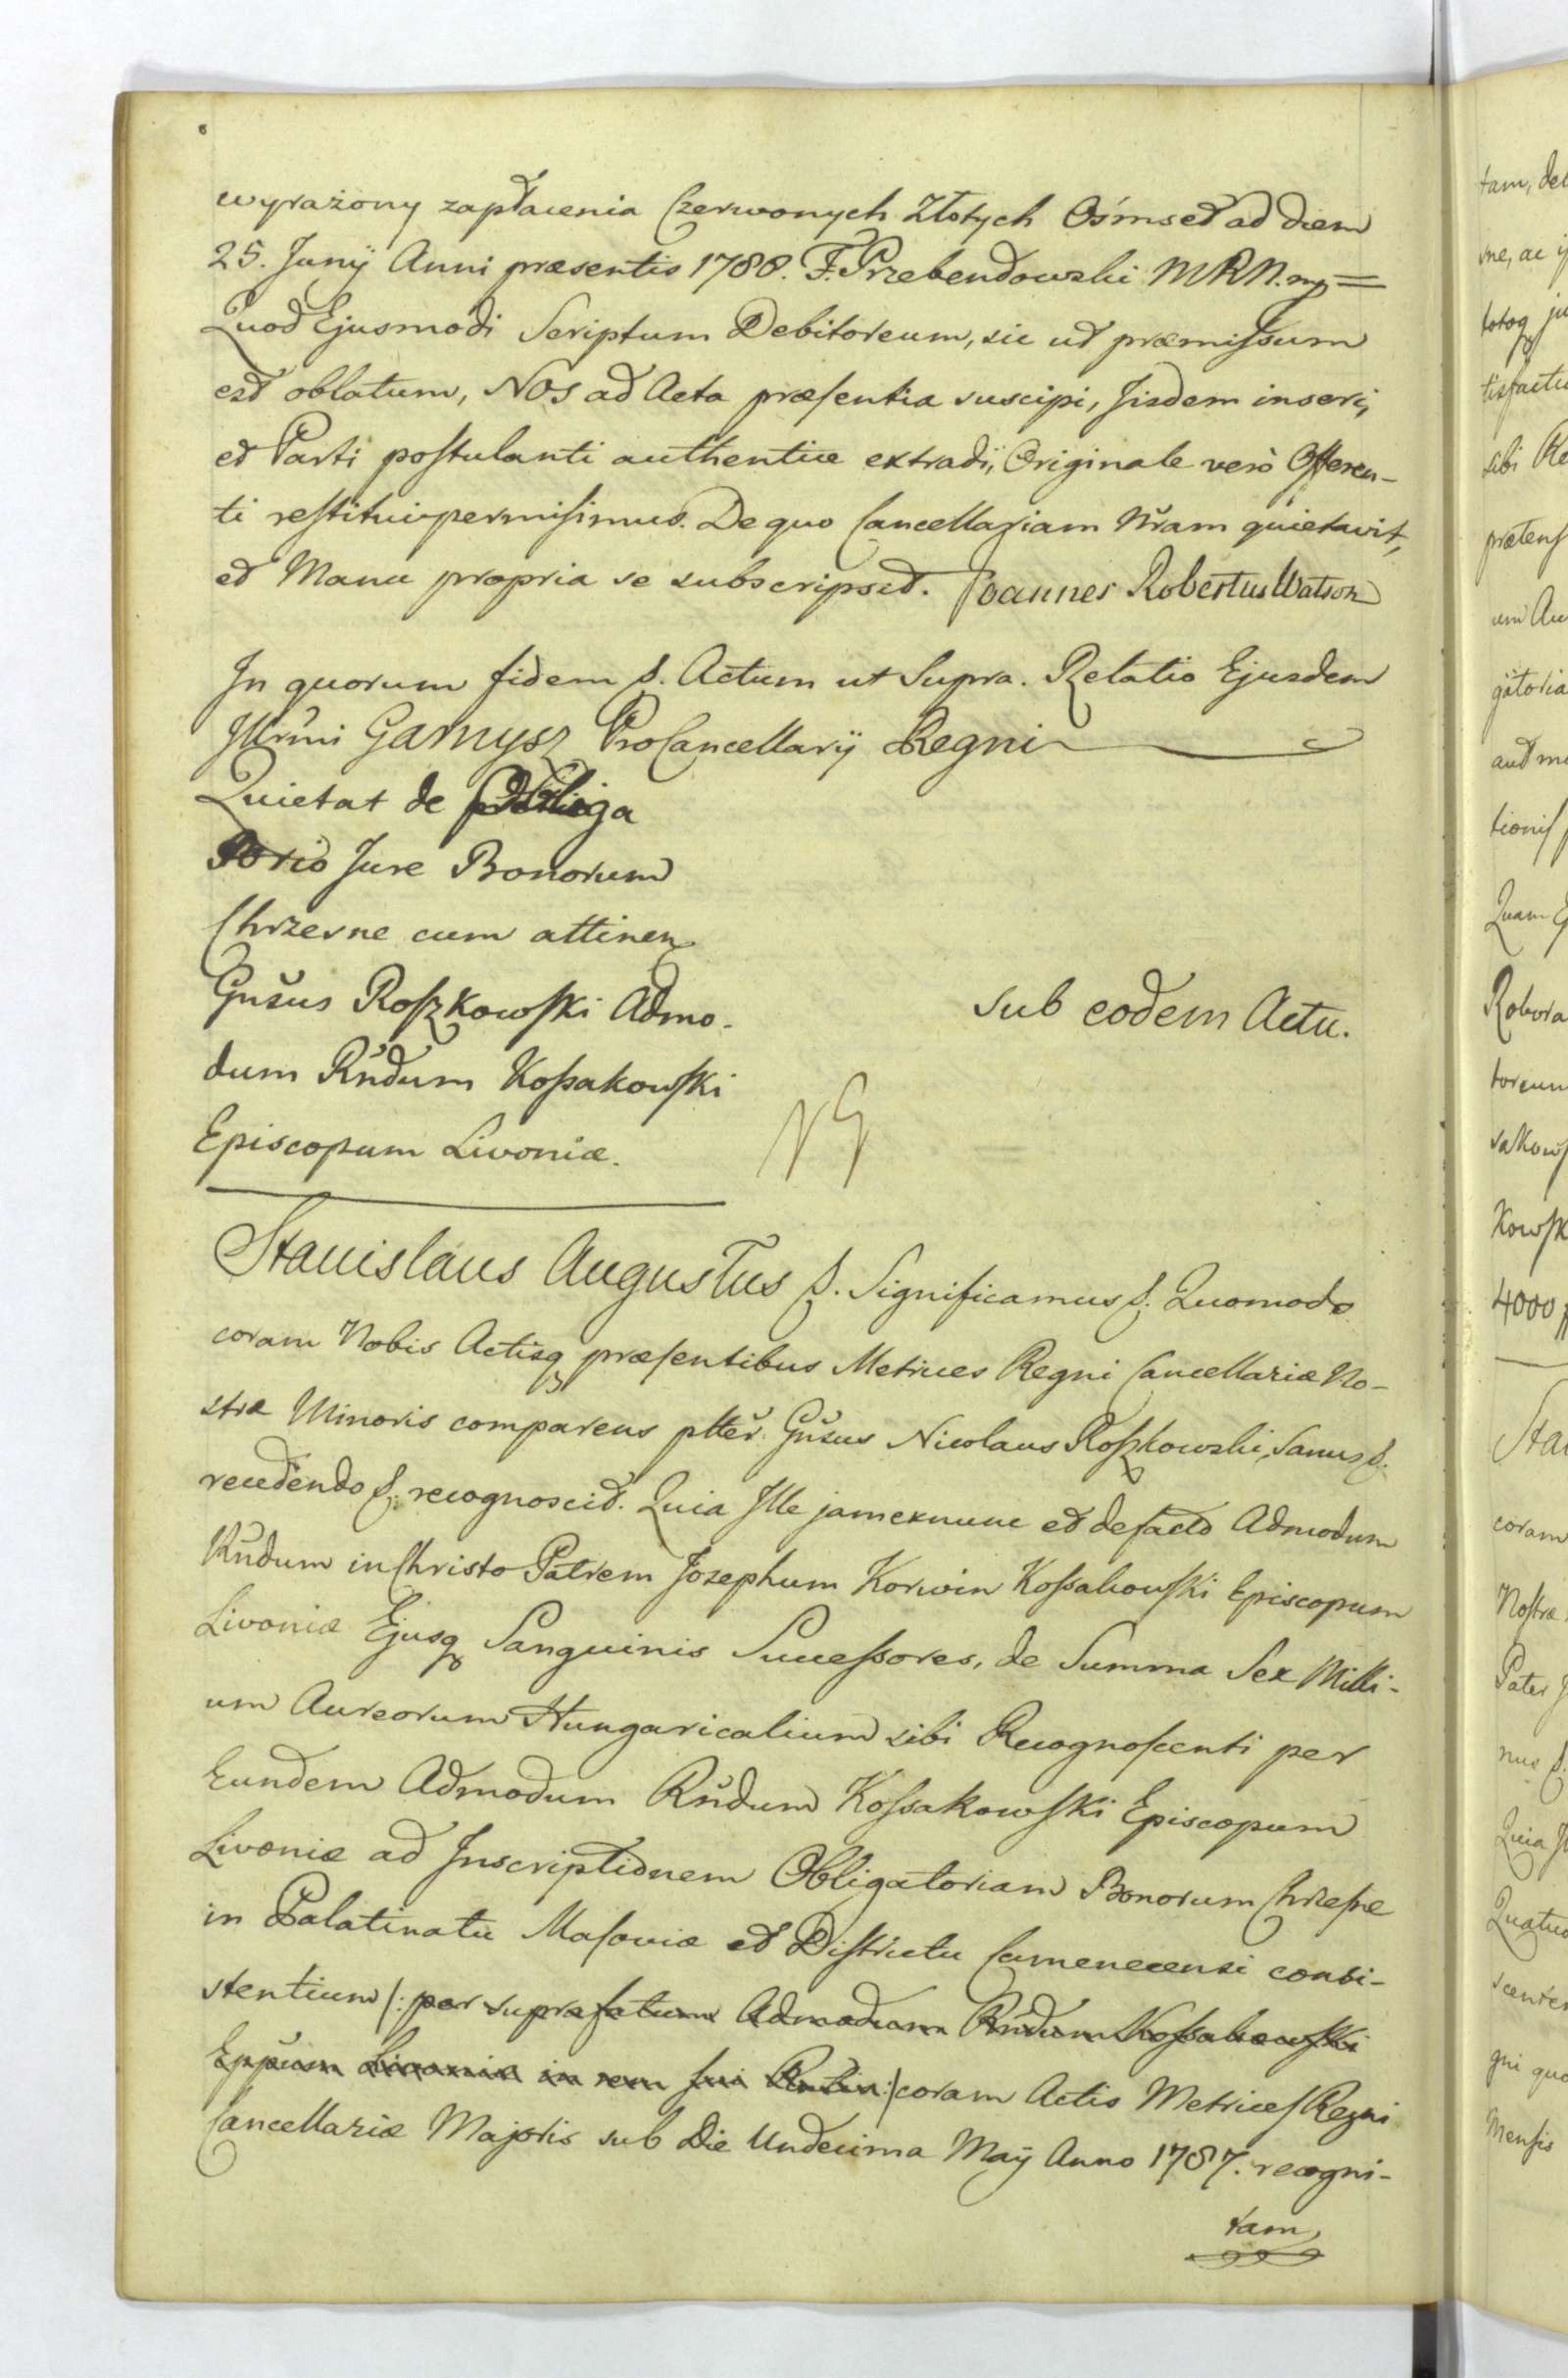 wyrażony zapłacenia Czerwonych Złotych Ośmset ad diem
25. Junÿ Anni præsentis 1788. F. Przebendowski MRN. mp =
Quod Ejusmodi Scriptum Debitoreum, sic ut præmiſsum
est oblatum, NOS ad Acta præſentia suscipi, Jisdem inseri,
et Parti poſtulanti authentice extradi, Originale verò Offeren-
ti reſtitui permiſimus. De quo Cancellariam Nr̃am quietavit,
et Manu propria se subscripsit. Joannes Robertus Watson
In quorum fidem &. Actum ut Supra. Relatio Ejusdem
Jllr̃mi Garnysz ProCancellarÿ Regni
Quietat de Obliga
torio Jure Bonorum
Chrzesne cum attinen
Gn̄sus Roſzkowſki Admo-
dum Rn̄dum Koſsakowſki
Episcopum Livoniæ.
Sub eodem Actu.
NG
Stanislaus Augustus &. Significamus &. Quomodo
coram Nobis Actisq præſentibus Metrices Regni Cancellariæ No-
stræ Minoris comparens pltēr Gn̄sus Nicolaus Roſzkowski, Sanus &.
recedendo &. recognoscit. Quia Jlle jam exnunc et defacto Admodum
Rn̄dum in Christo Patrem Josephum Korwin Koſsakowſki Episcopum
Livoniæ Ejusq Sanguinis Succeſsores, de Summa Sex Milli-
um Aureorum Hungaricalium sibi Recognoſcenti per
Eundem Admodum Rn̄dum Koſsakowſki Episcopum
Livoniæ ad Inscriptionem Obligatoriam Bonorum Chrzeſne
in Palatinatu Maſoviæ et Diſtrictu Camenecensi consi-
stentium /: per supra fatum Admodum Rn̄dum Koſsakowſki
Epp̄um Livoniæ in rem sui :/ coram Actis Metriceſ Regni
Cancellariæ Majoris sub Die Undecima Maÿ Anno 1787. recogni-
tam,
tam, deb
sibi Re
prætenſ
um Au
gatoria
aut m
tioniſ
Quam E
Robora
toreum
sakowſ
kowſk
4000
Sta
coram
Noſtræ
Pater J
nus &.
Quia Jl
Quatuo
gni quo
Menſis